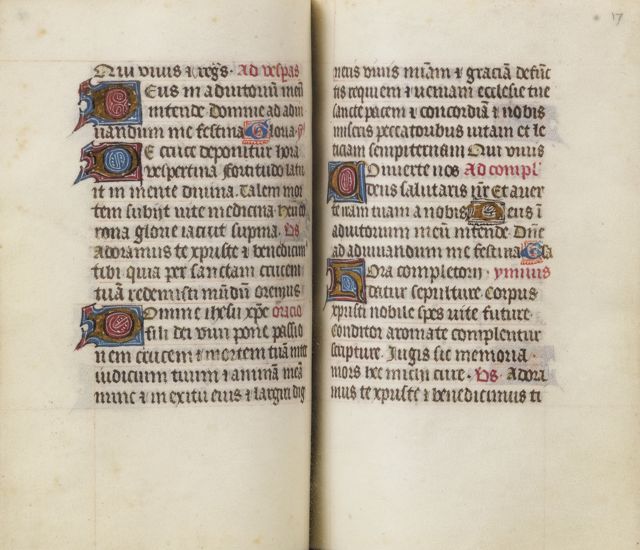 Qui vivis & regs. Ad vespas
Deus in adiutoriū meū
intende Domine ad adiu
uandum me festina Gloria. p
De cruce deponitur hora
vespertina fortitudo latu
it in mente diuina. Talem mor
tem subiit uite medicina heu co
rona glorie iacuit supina. Vs
Adoramus te xpriste & benedicim
tibi quia per sanctam crucem
tuā redemisti mūdū oremus
Domine ihesu xp̄e oracio
fili dei viui pone passio
nem crucem & mortem tuā int
iudicium tuum & animā meā
nunc & in exitu eius & largiri dig
17
neris viuis miām & graciā defūc
tis requiem & ueniam ecclesie tue
sancte pacem & concordiā & nobis
miseris peccatoribus uitam et le
ticiam sempiternam Qui vivis
Conuerte nos Ad compl'
deus salutaris nr̄ Et auer
te iram tuam a nobis Deus ī
adiutorium meū intende. Dn̄e
ad adiuuandum me festina Gla
Hora completorii. ymnus
datur sepulture. Corpus
xpristi nobile spes uite future.
Conditor aromate complentur
scripture. Jugis sit memoria.
mors hec michi cure. Vs. Adora
mus te xpriste & benedicimus ti